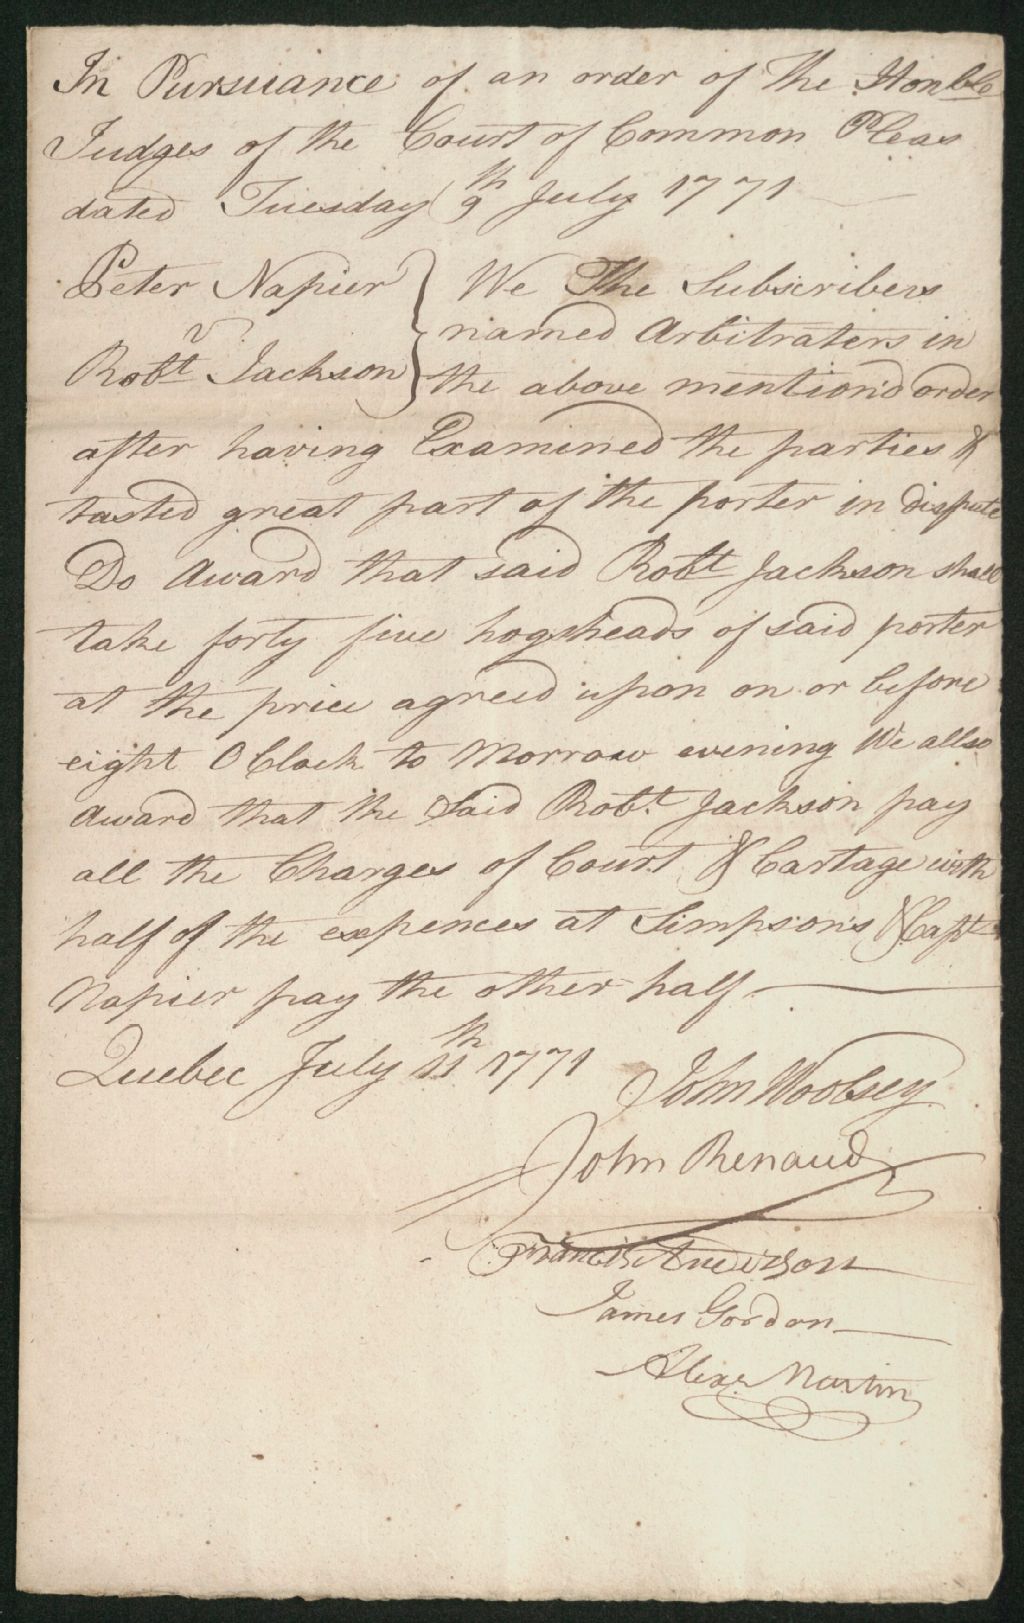 In Pursuance of an order of The Honble
Judges of the Court of Common Pleas
dated Tuesday 9th July 1771
Peter Napier
v
Robt Jackson
We The Subscribers
named Arbitraters in
the above mention'd order
after having Examined the parties &
tasted great part of the porter in dispute
Do Award that said Robt Jackson shall
take forty five hogsheads of said porter
at the price agreed upon on or before
eight O Clock to Morrow evening We allso
Award that the Said Robt Jackson pay
all the Charges of Court & Cartage with
half of the expences at Simpson's & Capt
Napier pay the other half
Quebec July 11th 1771
John Woolsey
John Renaud
Francis Anderson
James Gordon
Alexr Martin